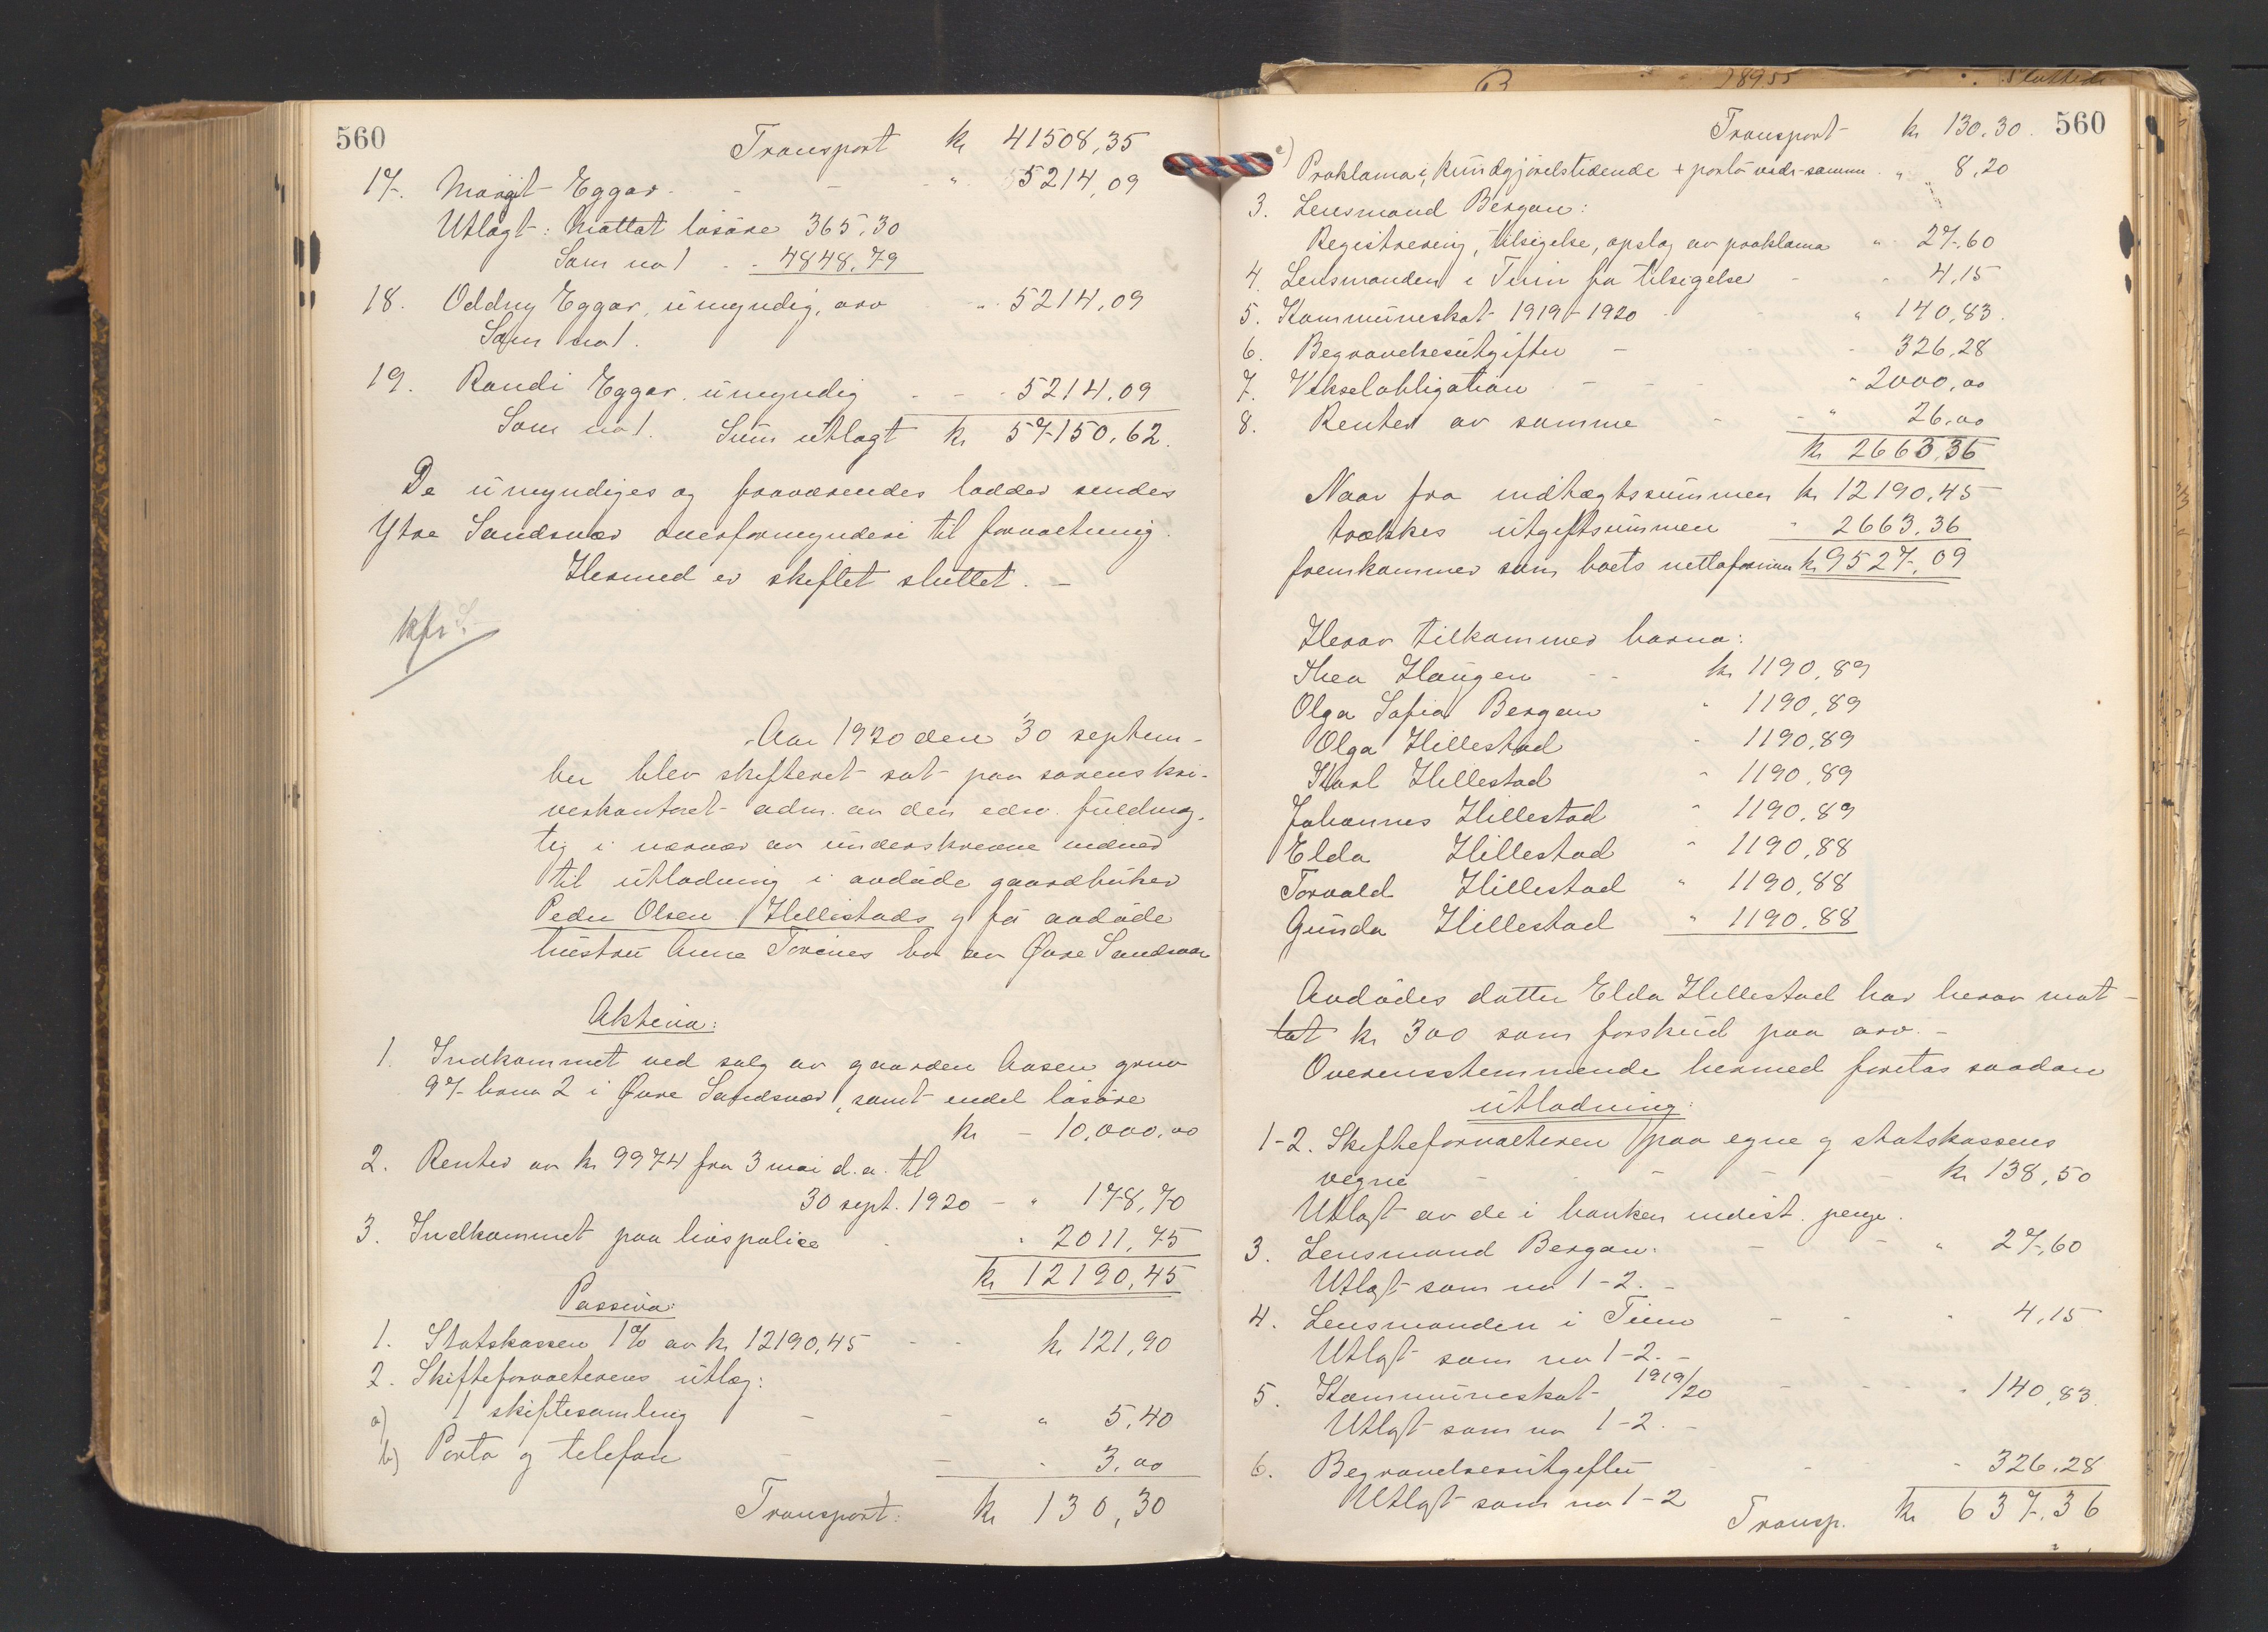 560
Transport kr 41508,35
17. Margit Eggar - - - " 5214,09
Utlagt: Mottat løsøre 365,30
Som no 1 - - 4848,79
18. Oddny Eggar, umyndig, arv " 5214,09
Som no 1.
19. Randi Eggar, umyndig - - - 5214,09
Som no 1. Sum utlagt kr 57150,62.
De umyndiges og fraværendes lodder sendes
Ytre Sandsvær overformynderi til forvaltning.
Hermed er skiftet sluttet. -
kfr.
Aar 1920 den 30 septem-
ber blev skifteret sat paa sorenskri-
verkontoret adm. av den edsv. fuldmæg-
tig i nærvær av underskrevne vidner
til utlodning i avdøde gaardbruker
Peder Olsen Hellestads og før avdøde
hustru Anne Torines bo av Øvre Sandsvær
Aktiva:
1. Indkommet ved salg av gaarden Aasen grno
97 brno 2 i Øvre Sandsvær, samt endel løsøre
kr - 10.000.00
2. Renter av kr 9974 fra 3 mai d.a. til
30 sept. 1920 - " 178,70
3. Indkommet paa livspolice - " 2011,75
kr 12190,45
Passiva:
1. Statskassen 1% av kr 12190,45 - - kr 121,90
2. Skifteforvalterens utlæg:
a) 1 skiftesamling - - " 5,40
b) Porto og telefon - - " 3.00
Transport: kr 130,30
Transport kr 130,30. 560
c) Proklama i Kundgjørelstidende + porto vedr. samme. " 8,20
3. Lensmand Bergan:
Registrering, tilsigelse, opslag av proklama " 27,60
4. Lensmanden i Tinn for tilsigelse - " 4,15
5. Kommuneskat 1919-1920 - - " 140,83.
6. Begravelsesutgifter - - - 326,28
7. Vekselobligation - - - " 2000,00
8. Renter av samme - - " 26.00
kr 2663,36
Naar fra indtægtssummen kr 12190,45
trækkes utgiftsummen " 2663,36
fremkommer som boets nettoformue kr 9527,09
Herav tilkommer barna:
Thea Haugen - - kr 1190,89
Olga Sofia Bergan " 1190,89
Olga Hillestad " 1190,89
Karl Hillestad " 1190,89
Johannes Hillestad " 1190,89
Elda Hillestad " 1190,88
Torvald Hillestad " 1190,88
Gunda Hillestad " 1190,88
Avdødes datter Elda Hillestad har herav mot-
tat kr 300 som forskud paa arv. -
Overensstemmende hermed foretas saadan
utlodning:
1-2. Skifteforvalteren paa egne og statskassens
vegne - - - - kr 138,50
Utlagt av de i banken indest. penge.
3. Lensmand Bergan: - - " 27,60
Utlagt som no 1-2. -
4. Lensmanden i Tinn - - " 4,15
Utlagt som no 1-2. -
5. Kommuneskat 1919/20 - - - " 140,83.
Utlagt som no 1-2. -
6. Begravelsesutgifter - - " 326.28
Utlagt som no 1-2
Transp. kr 637,36